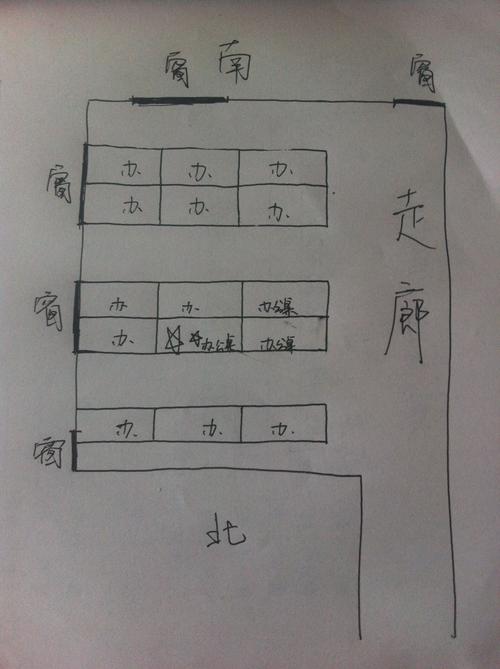 窗 南 窗
窗
办 办 办
办 办 办
走廊
窗
办 办 办公桌
办 办公桌 办公桌
办 办 办
窗
北